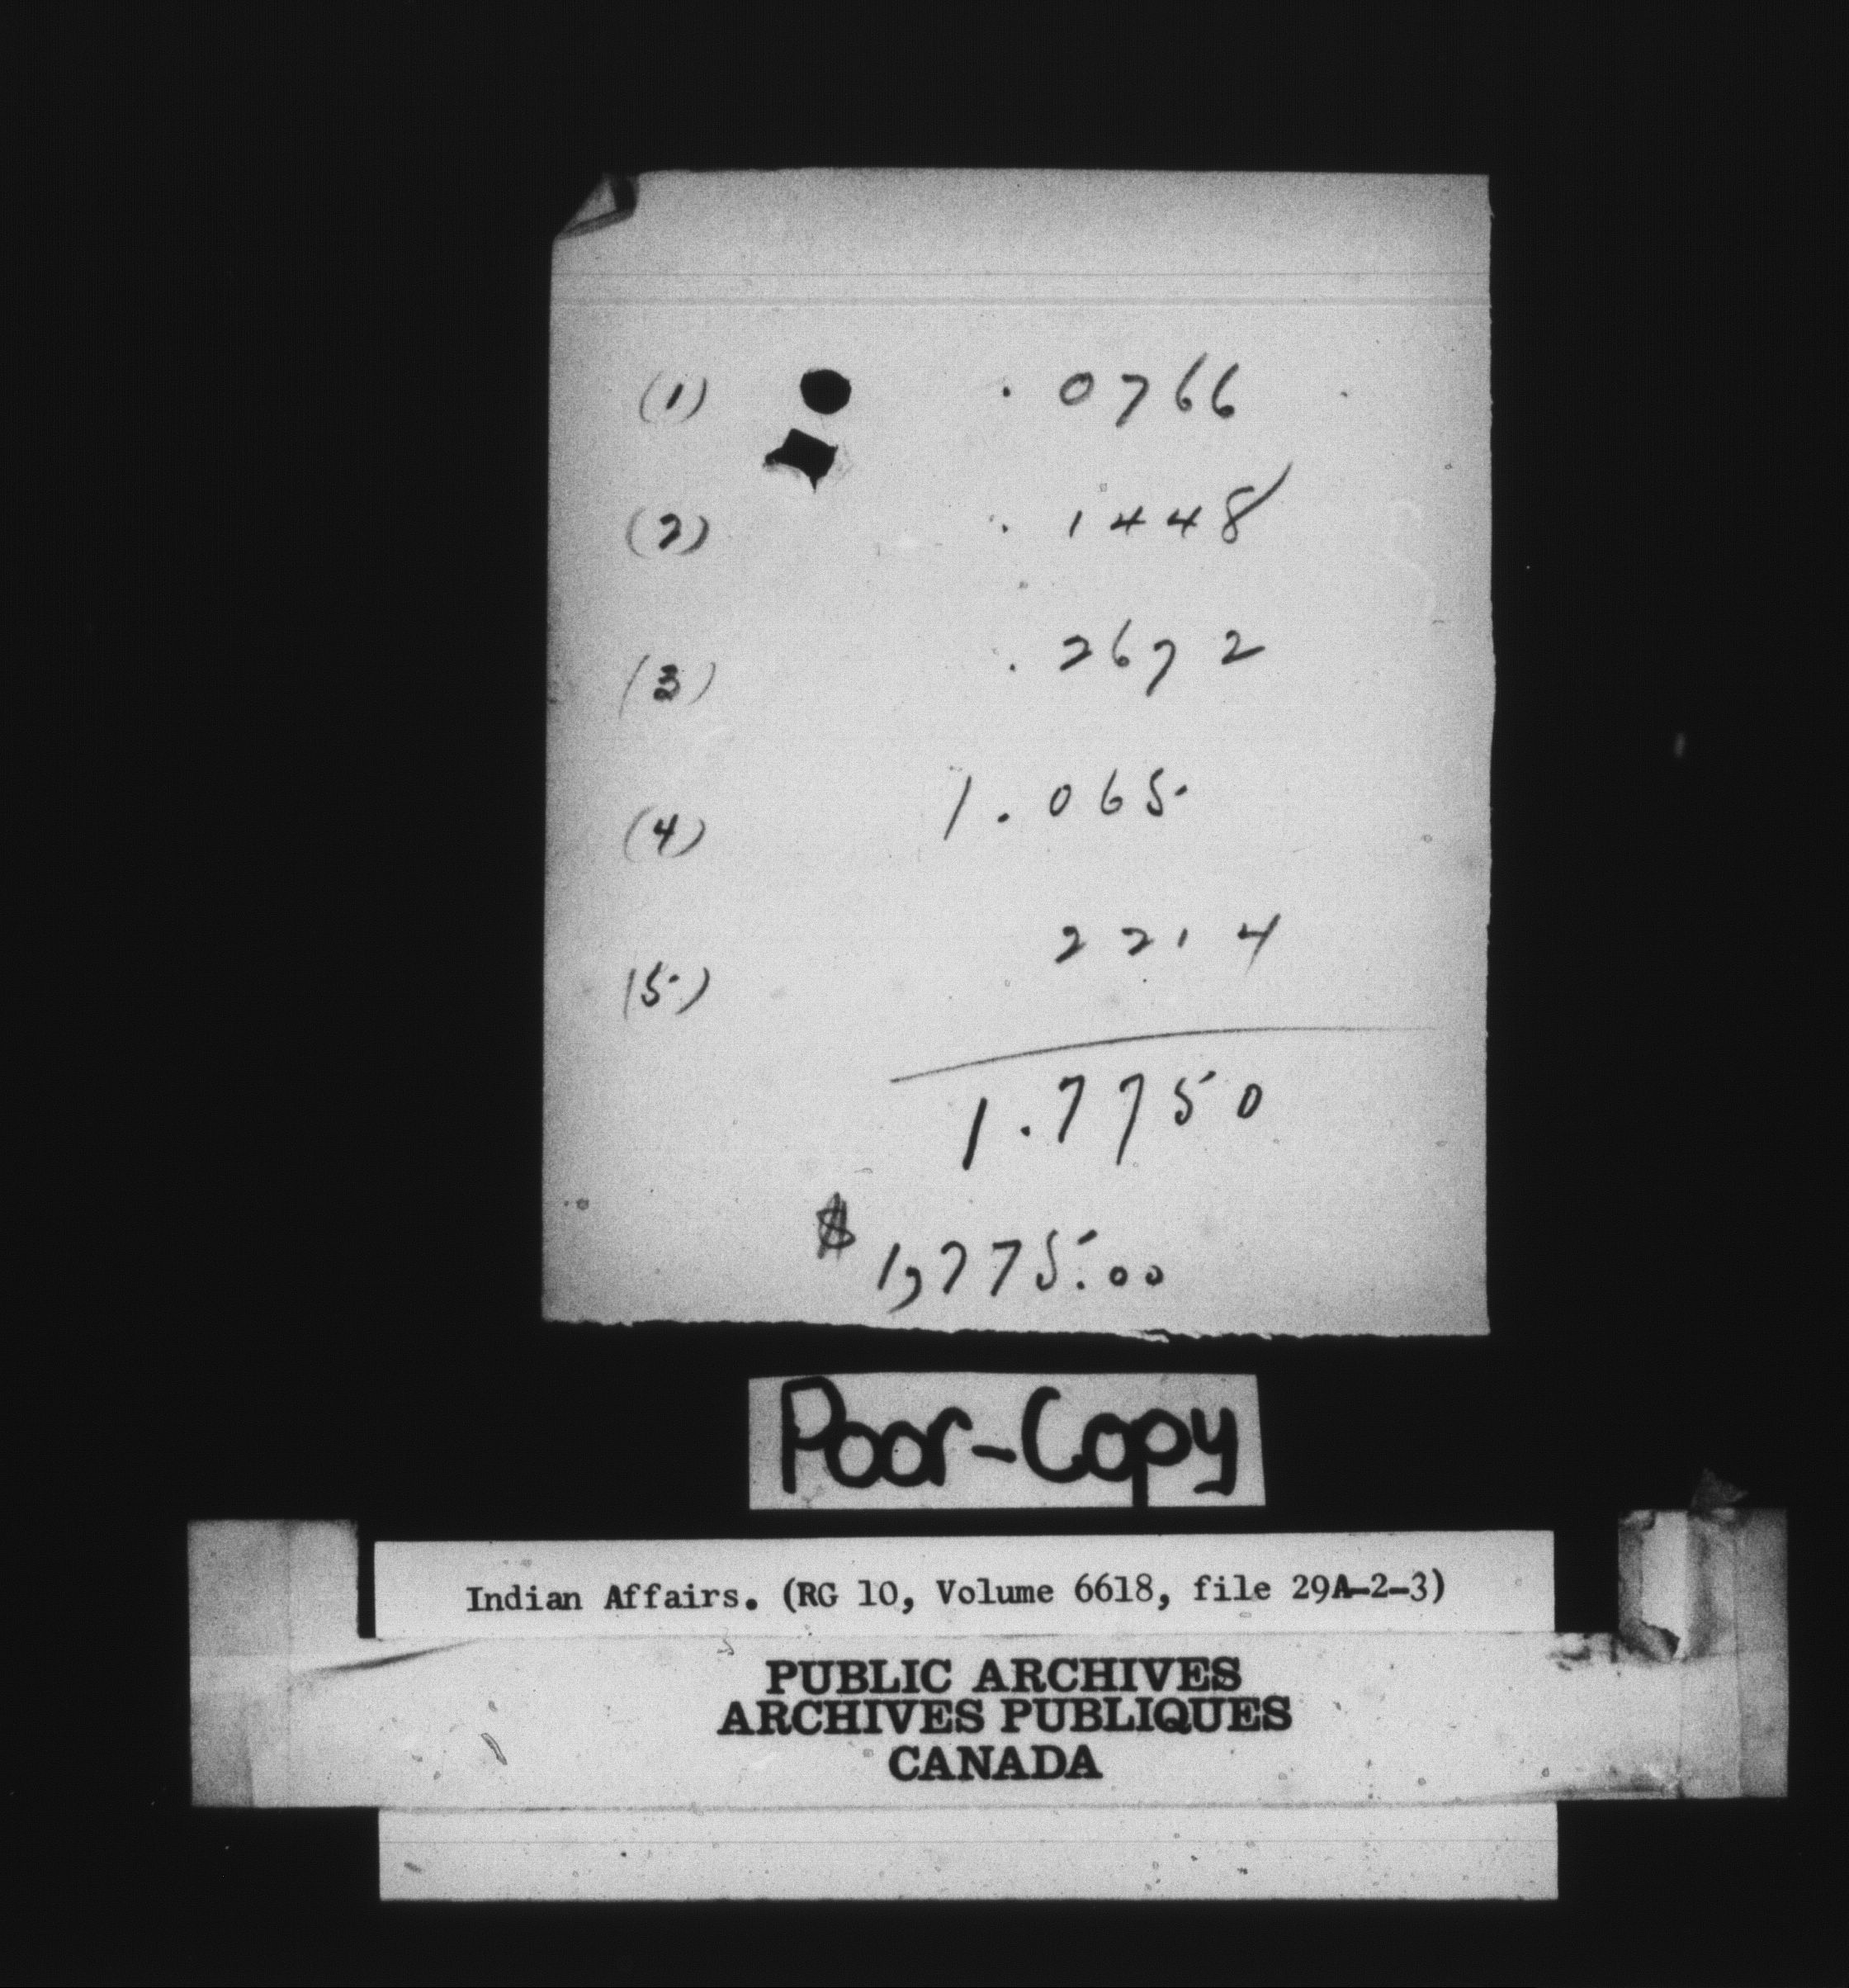 (1) . 0766
(2) . 1448
(3) . 2672
(4) 1 . 065
(5) 2214
1 . 7750
$ 1,775.00
Poor-Copy
Indian Affairs. (RG 10, Volume 6618, file 29A-2-3)
PUBLIC ARCHIVES
ARCHIVES PUBLIQUES
CANADA